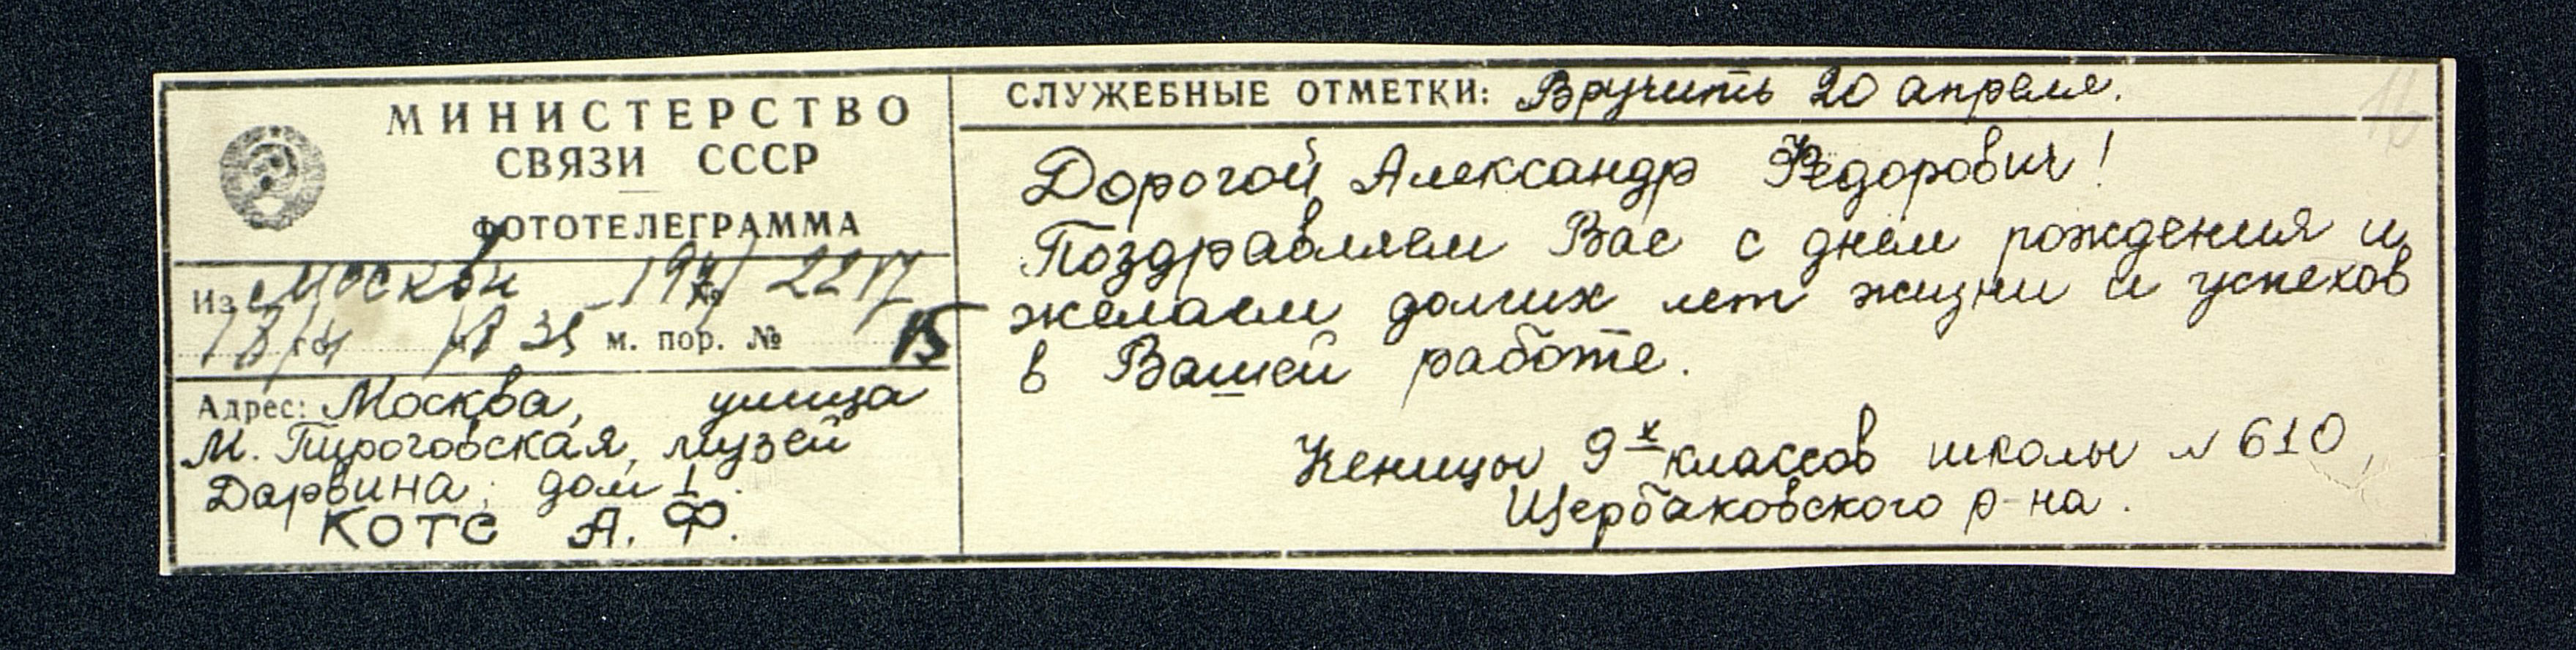 МИНИСТЕРСТВО
СВЯЗИ СССР
ФОТОТЕЛЕГРАММА
Из Москвы 2217
18/4 18 35 м. пор. № 15
Адрес: Москва, улица
М. Пироговская, музей
Дарвина, дом 1.
КОТС А. Ф.
СЛУЖЕБНЫЕ ОТМЕТКИ: Вручить 20 апреля.
16
Дорогой Александр Федорович!
Поздравляем Вас с днем рождения и
желаем долгих лет жизни и успехов
в Вашей работе.
Ученицы 9х классов школы N 610,
Щербаковского р-на.